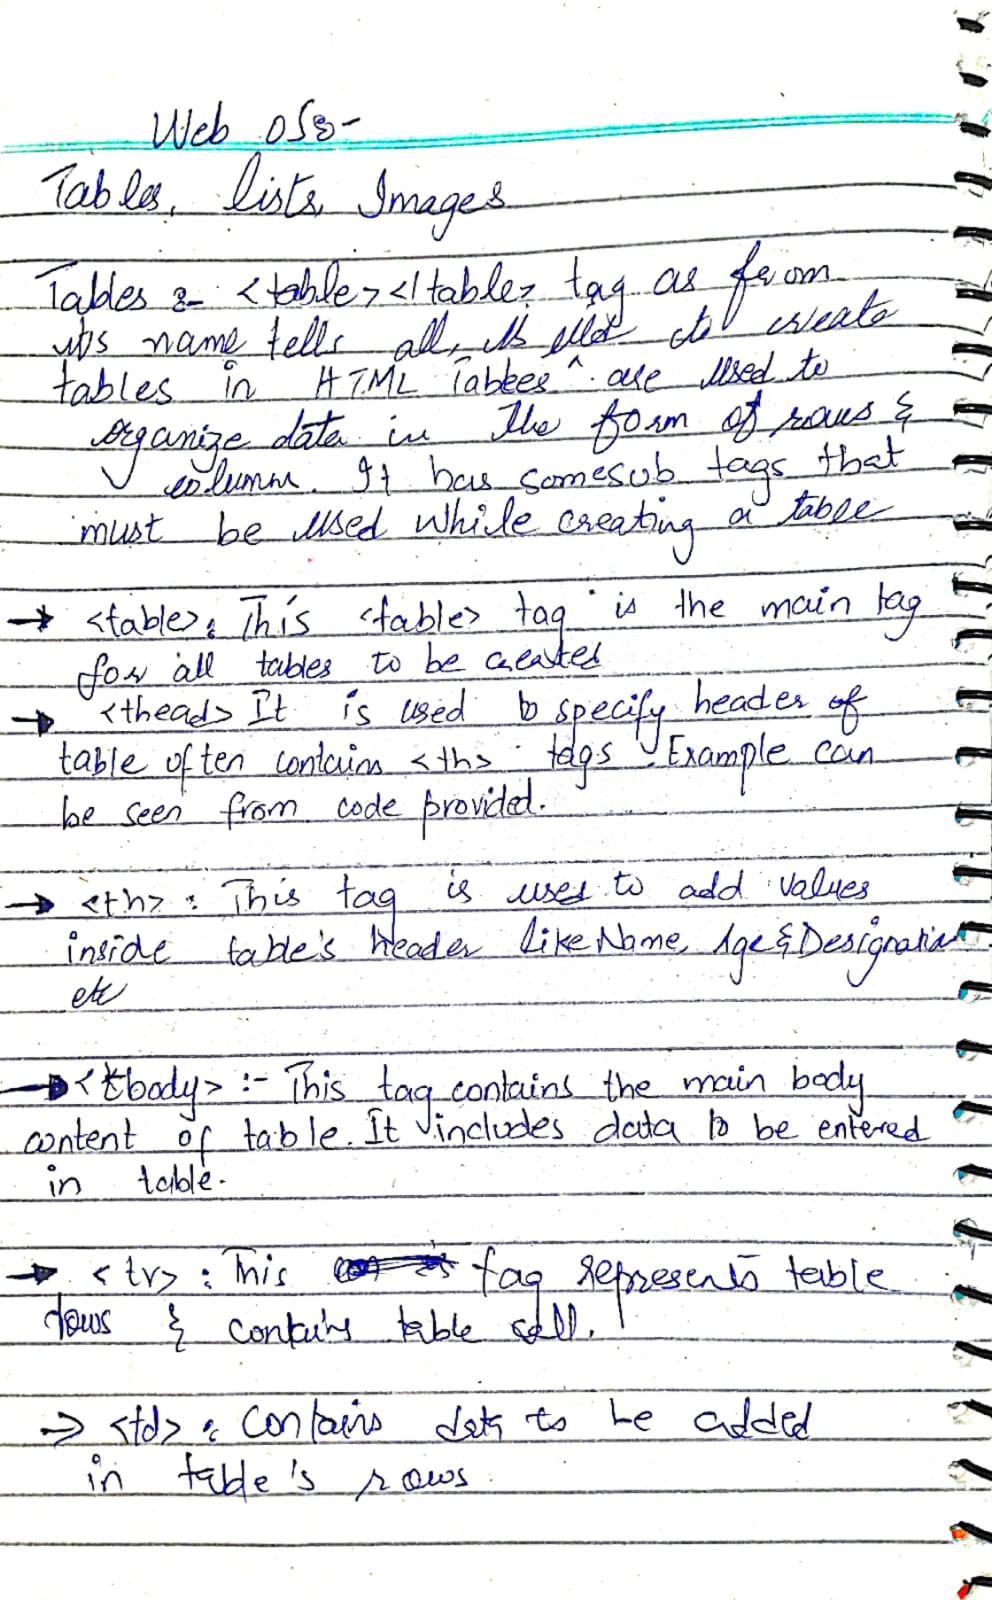 Web 05:-
Tables, lists, Images
Tables :- <table></table> tag as from
its name tells all, is used to create
tables in HTML Tables ^ are used to
organize data in the form of rows &
column. It has somesub tags that
must be used while creating a table
→ <table>: This <table> tag is the main tag
for all tables to be created
→ <thead> It is used to specify header of
table often contains <th> tags. Example can
be seen from code provided.
→ <th> : This tag is used to add values
inside table's header like Name, Age & Designation
etc
→ <tbody> :- This tag contains the main body
content of table. It includes data to be entered
in table.
→ <tr> : This tag represents table
rows & contains table cell.
→ <td> : Contains data to be added
in table's rows